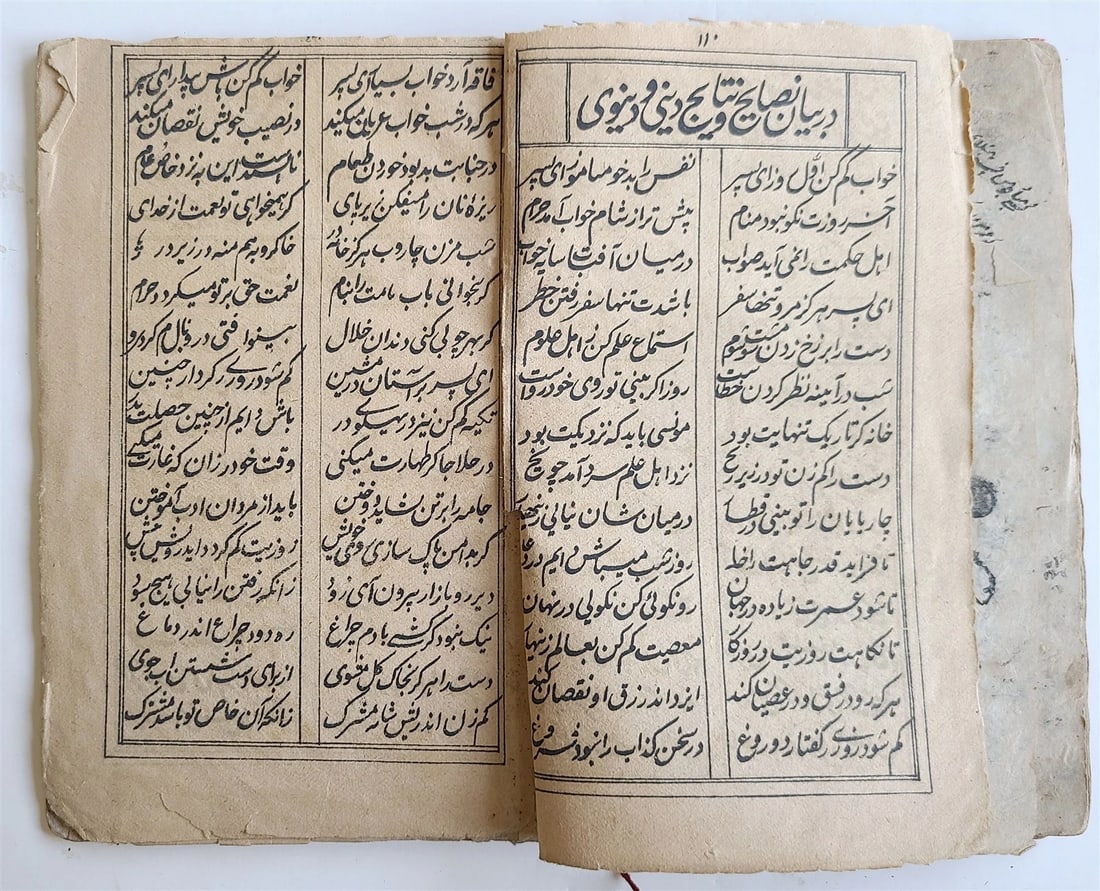 ١١٠
در بیان نصایح و نتایج دینی و دنیوی
خواب کم کن اول روز ای پسر نفس را بدخو میاموز ای پسر
آخر روزت نکو نبود منام پیش تر از شام خواب آمد حرام
اهل حکمت را نمی آید صواب در میان آفتاب و سایه خواب
ای پسر هرگز مرو تنها سفر باشدت تنها سفر رفتن خطر
دست را بر رخ زدن شوم ست شوم استماع علم کن ز اهل علوم
شب در آیینه نظر کردن خطاست روز اگر بینی تو روی خود رواست
خانه گر تاریک تنهایت بود مونسی باید که نزدیکت بود
دست را کم زن تو در زیر زنخ نزد اهل علم سرد آمد چو یخ
چارپایان را تو بینی در قطار در میان شان نیائی زینهار
تا فزاید قدر و جاهت را خدا روز و شب میباش دایم در دعا
تا شود عمرت زیاده در جهان رو نکوئی کن نکوئی در نهان
تا نکاهت روزیت در روزگار معصیت کم کن بعالم زینهار
هر که رو در فسق و در عصیان کند ایزد اندر رزق او نقصان کند
کم شود روزی ز گفتار دروغ در سخن کذاب را نبود فروغ
فاقه آرد خواب بسیار ای پسر خواب کم کن باش بیدار ای پسر
هر که در شب خواب عریان میکند در نصیب خویش نقصان میکند
در جنابت بد بود خوردن طعام ناپسندست این به نزد خاص و عام
ریزهٔ نان را میفکن زیر پای گر همیخواهی تو نعمت از خدای
شب مزن جاروب هرگز خانه در خاکروبه هم منه در زیر در
گر بخوانی باب و مامت را بنام نعمت حق بر تو میگردد حرام
گر بهر چوبی کنی دندان خلال بینوا افتی در وبال
ای پسر بر آستان در مشین کم شود روزی ز کردار چنین
تکیه کم کن نیز در پهلوی در باش دایم از چنین خصلت بدر
در خلا جا گر طهارت میکنی وقت خود را زان که غارت میکنی
جامه را بر تن نشاید دوختن باید از مردان ادب آموختن
گر بدامن پاک سازی روی خویش روزیت کم گردد ای درویش بیش
دیر رو بازار و بیرون آی زود زانکه رفتن را نیابی هیچ سود
نیک نبود گر کشی با دم چراغ ره دود چراغ اندر دماغ
دست را هر گز بخاک و گل مشوی از برای دست شستن آب جوی
کم زن اندر ریش شانه مشترک زانکه آن خاص تو باشد مشترک